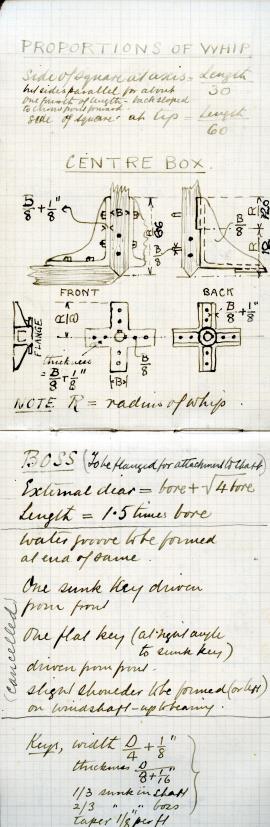 PROPORTIONS OF WHIP
side of square at axis = Length
30
but sides parallel for about
one fourth of length - back sloped
side of square at tip = Length
60
CENTRE BOX.
B/8 + 1/8"
B
R/6
B/8
R/120
FRONT
BACK
FLANGE
R/9
thickness
= B/8 + 1/8"
B
B/8
B/8 + 1/8"
NOTE. R = radius of whip.
BOSS (To be flanged for attachment to shaft)
External diar = bore + √4 bore
Length = 1.5 times bore
water groove to be formed
at end of same.
One sunk key driven
from front
One flat key (at right angle
to sunk key)
driven from front.
slight shoulder to be formed (or left)
on windshaft - up to bearing.
(cancelled)
Keys, width D/4 + 1/8"
thickness D/8 + 1/16"
1/3 sunk in shaft
2/3 " " boss
taper 1/8" per ft